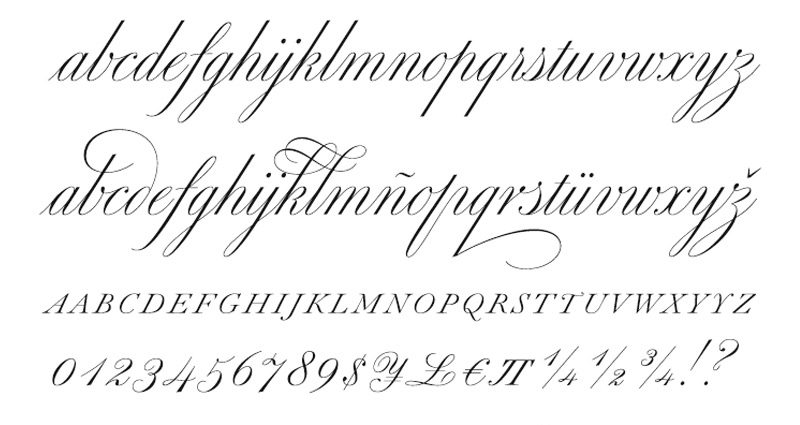 abcdefghijklmnopqrstuvwxyz
abcdefghijklmñopqrstüvwxyž
AABCDEFGHIJKLMNOPQRSTTUVWXYYZ
0123456789$¥£€π¼½¾.!?